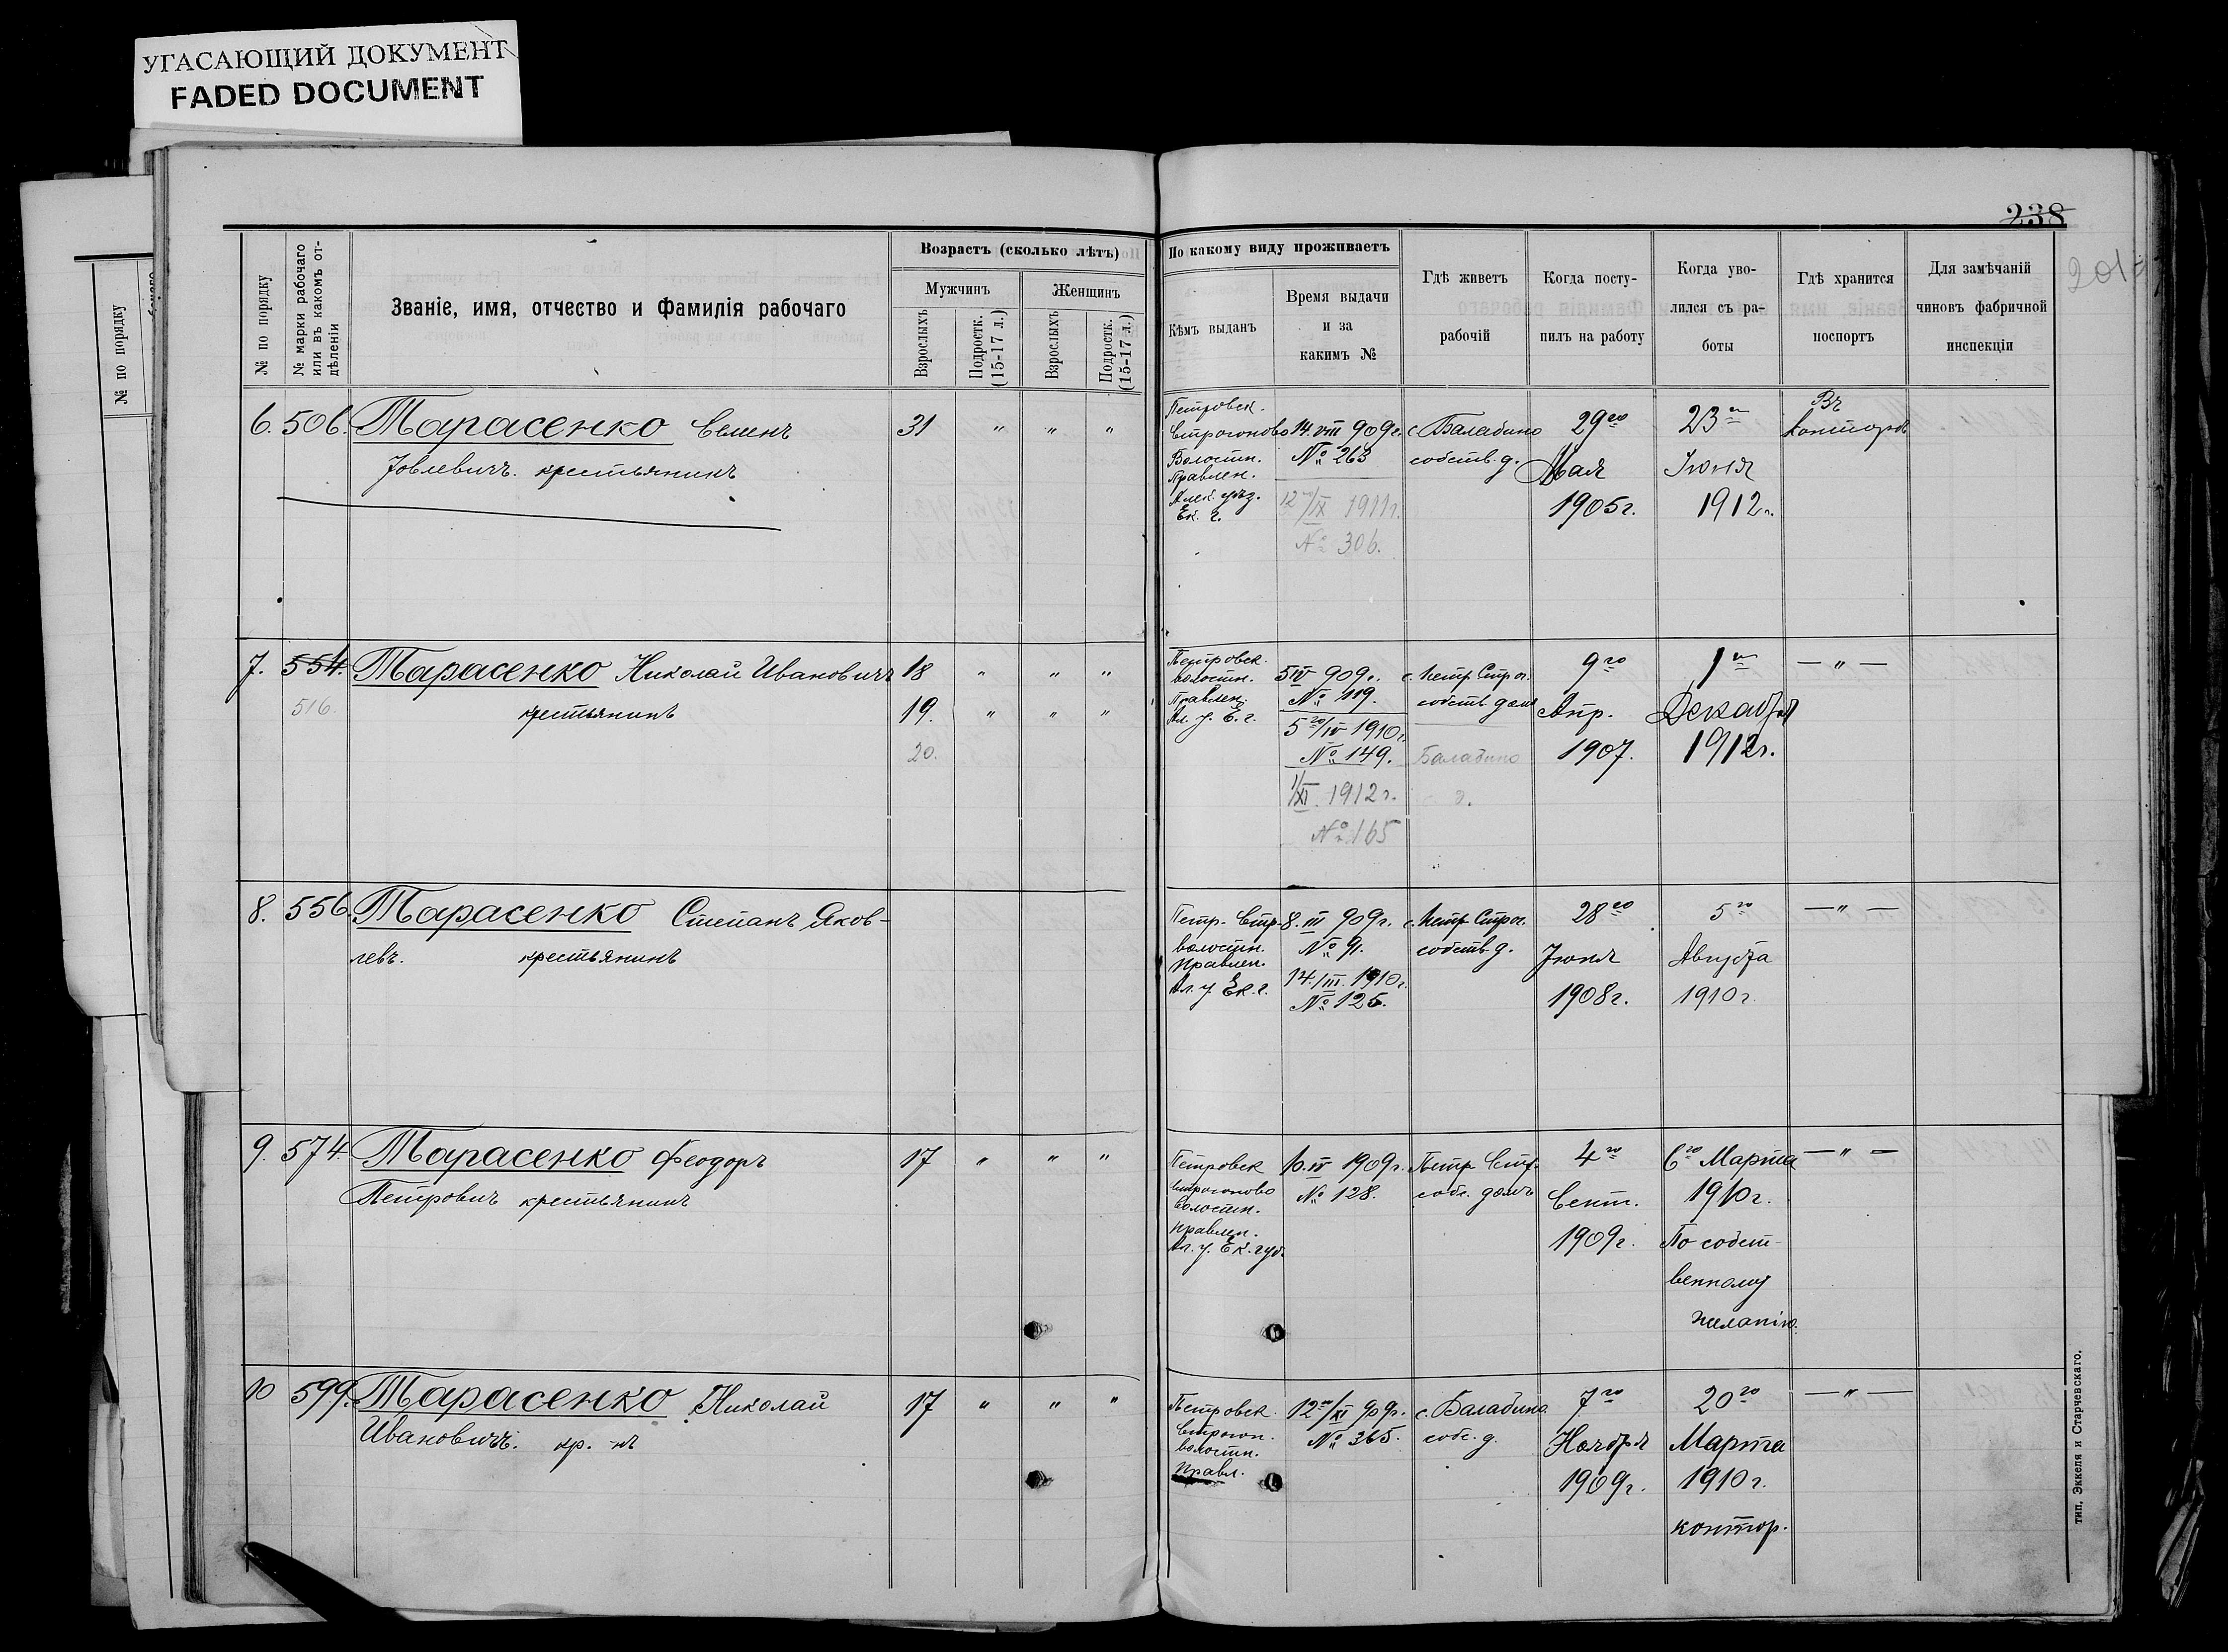 УГАСАЮЩИЙ ДОКУМЕНТ
FADED DOCUMENT
238
№ по порядку
№ по порядку
№ марки рабочаго
или въ какомъ от-
дѣленіи
Званіе, имя, отчество и Фамилія рабочаго
Возрастъ (сколько лѣтъ)
Мужчинъ
Женщинъ
Взрослыхъ
Подростк.
(15-17 л.)
Взрослыхъ
Подростк.
(15-17 л.)
По какому виду проживаетъ
Кѣмъ выданъ
Время выдачи
и за
какимъ №
Гдѣ живетъ
рабочій
Когда посту-
пилъ на работу
Когда уво-
лился съ ра-
боты
Гдѣ хранится
поспортъ
Для замѣчаній
чиновъ фабричной
инспекціи
6. 506. Тарасенко Семенъ
Іовлевичъ. крестьянинъ
31 " " "
Петровск.
Строгоново
Волостн.
Правлен.
Алек. уѣз.
Ек. г.
14. VIII 909г.
№ 263
12го/IX 1911г.
№ 306.
с. Балабино
собств. д.
29го
Мая
1905г.
23го
Іюня
1912г.
Въ
Конторѣ
7. 554. Тарасенко Николай Ивановичъ
516. крестьянинъ
18 " " "
19. " " "
20.
Петровск.
волостн.
Правлен.
Ал. у. Е. г.
5 IV 909г.
№ 119.
5го/IV 1910г.
№ 149.
1/XI. 1912г.
№ 165
с. Петр. Строг.
собств. домъ
Балабино
д.
9го
Апр.
1907.
1го
Декабря
1912г.
— " —
8. 556 Тарасенко Степанъ Яков-
левъ. крестьянинъ
Петр. Стр.
волостн.
Правлен.
Ал. у. Ек. г.
8. III 909г.
№ 91.
14./III. 1910г.
№ 125.
с. Петр. Строг.
собств. д.
28го
Іюня
1908г.
5го
Августа
1910г.
— " —
9. 574. Тарасенко Феодоръ
Петровичъ крестьянинъ
17 " " "
Петровск
Строгоново
волостн.
правлен.
Ал. у. Ек. губ.
10. IV 1909г.
№ 128.
Петр. Стр.
собс. домъ
4го
Сент.
1909г.
6го Марта
1910г.
По собст-
венному
желанію.
— " —
10 599. Тарасенко Николай
Ивановичъ. кр.-нъ
17 " " "
Петровск.
Строгон.
волостн.
Правл.
12го/XI 909г.
№ 365.
с. Балабино.
собс. д.
7го
Ноября
1909г.
20го
Марта
1910г.
контор.
— " —
тип. Эккеля и Старчевскаго.